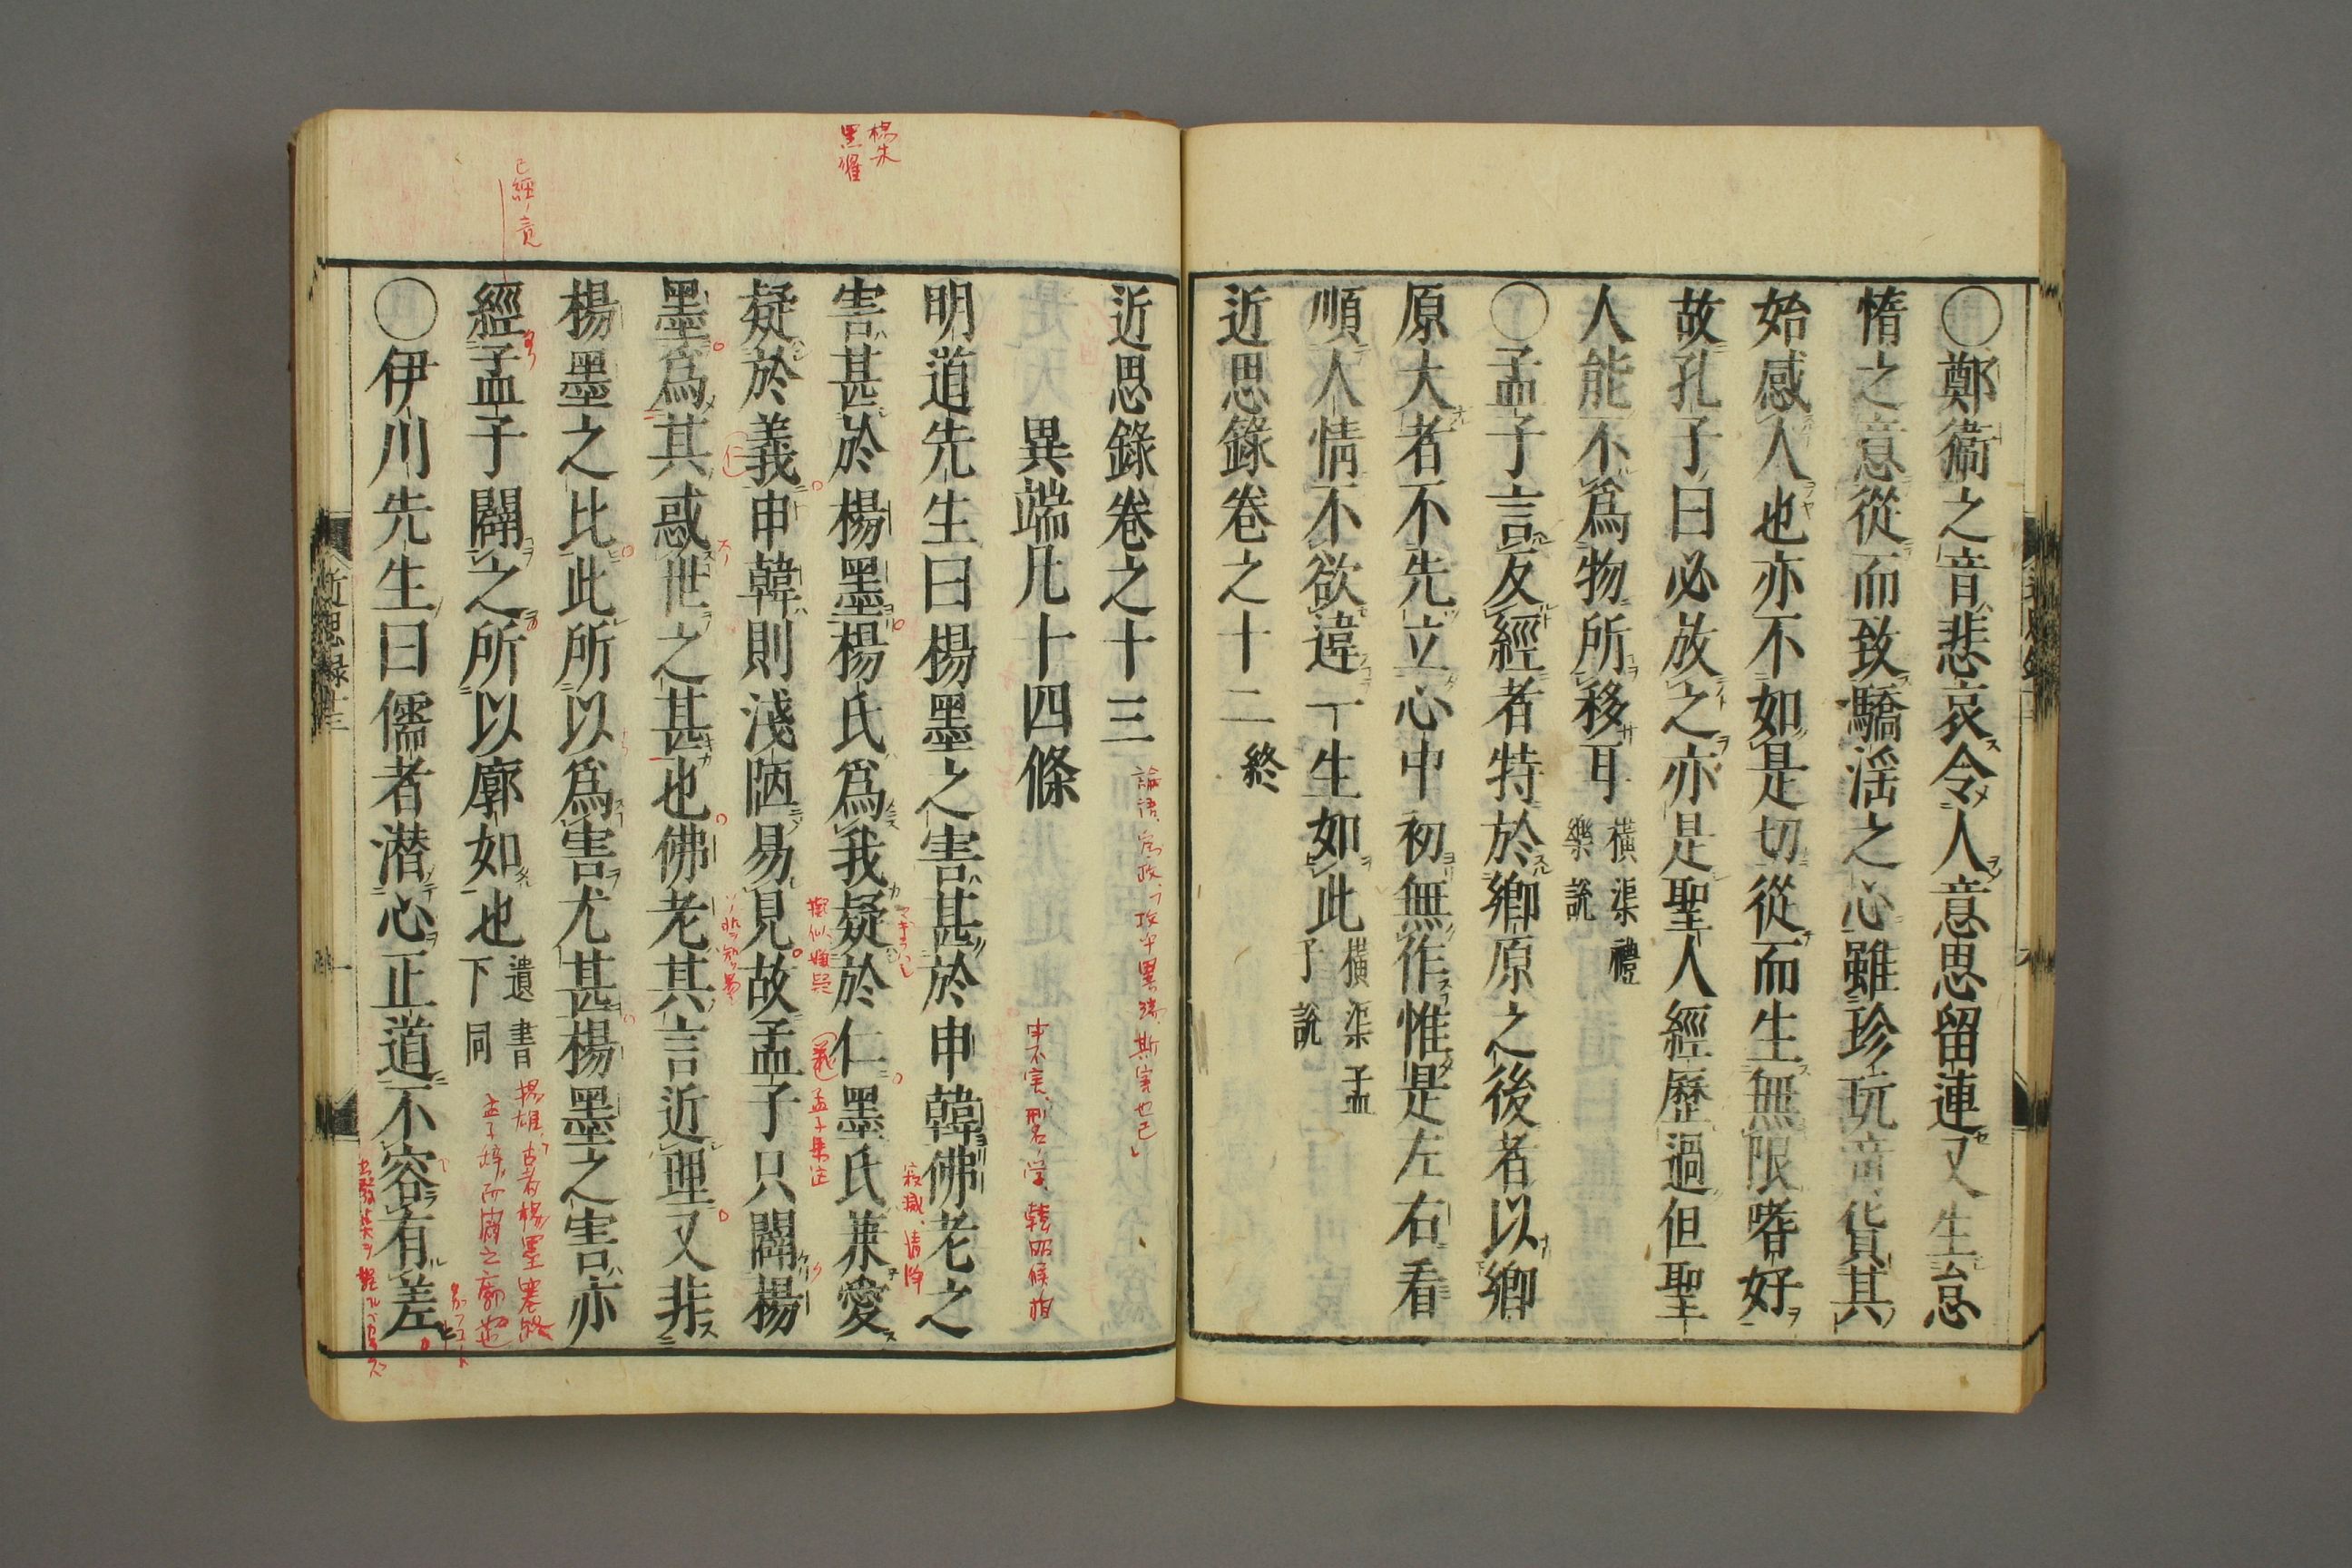 ○鄭衞之音悲哀令人意思留連又生怠
惰之意從而致驕淫之心雖珍玩竒貨其
始感人也亦不如是切從而生無限嗜好
故孔子曰必放之亦是聖人經歷過但聖
人能不爲物所移耳
橫渠禮
樂說
○孟子言反經者特於鄉原之後者以鄉
原大者不先立心中初無作惟是左右看
順人情不欲違一生如此
橫渠孟
子說
近思錄卷之十二終
近思錄卷之十三
異端凡十四條
明道先生曰楊墨之害甚於申韓佛老之
害甚於楊墨楊氏爲我疑於仁墨氏兼愛
疑於義申韓則淺陋易見故孟子只闢楊
墨爲其惑世之甚也佛老其言近理又非
楊墨之比此所以爲害尤甚楊墨之害亦
經孟子闢之所以廓如也
遺書
下同
○伊川先生曰儒者潜心正道不容有差
近思録
楊朱
墨翟
論語、爲政、攻乎異端、斯害也已
申不害、刑名ノ学、韓昭侯相
寂滅、清浄
孟子集注
揚雄、古者楊墨塞路
孟子辞而闢之廓如也